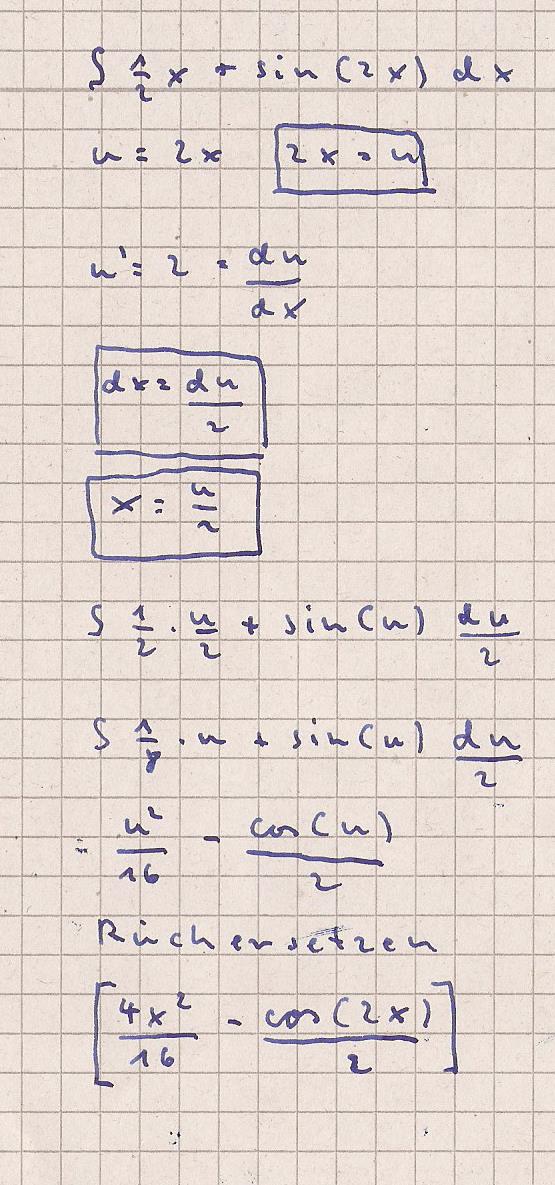 ∫ 1/2 x + sin(2x) dx
u = 2x 2x = u
u' = 2 = du/dx
dx = du/2
x = u/2
∫ 1/2 · u/2 + sin(u) du/2
∫ 1/8 · u + sin(u) du/2
= u²/16 - cos(u)/2
Rückersetzen
[4x²/16 - cos(2x)/2]